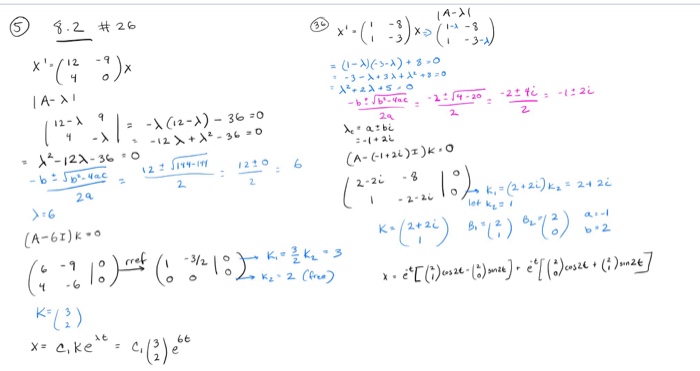 ⑤ 8.2 # 26
x' = (12 -9; 4 0) x
|A-λ|
|12-λ 9; 4 -λ| = -λ(12-λ) - 36 = 0
= -12λ + λ² - 36 = 0
= λ² - 12λ - 36 = 0
-b ± √b²-4ac / 2a = 12 ± √144-144 / 2 = 12 ± 0 / 2 = 6
λ=6
(A-6I)K=0
(6 -9 | 0; 4 -6 | 0) rref → (1 -3/2 | 0; 0 0 | 0) → K₁ = 3/2 K₂ = 3
→ K₂ = 2 (free)
K = (3; 2)
x = c₁ K e^λt = c₁ (3; 2) e^6t
㊱ x' = (1 -8; 1 -3) x ⇒ (1-λ -8; 1 -3-λ)
|A-λ|
= (1-λ)(-3-λ) + 8 = 0
= -3 - λ + 3λ + λ² + 8 = 0
= λ² + 2λ + 5 = 0
-b ± √b²-4ac / 2a = -2 ± √4-20 / 2 = -2 ± 4i / 2 = -1 ± 2i
λ = a ± bi
= -1 + 2i
(A-(-1+2i)I)K=0
(2-2i -8 | 0; 1 -2-2i | 0) → K₁ = (2+2i)K₂ = 2+2i
let K₂ = 1
K = (2+2i; 1) B₁ = (2; 1) B₂ = (2; 0) a=-1
b=2
x = e^-t [(2; 1) cos2t - (2; 0) sin2t] + e^-t [(2; 0) cos2t + (2; 1) sin2t]